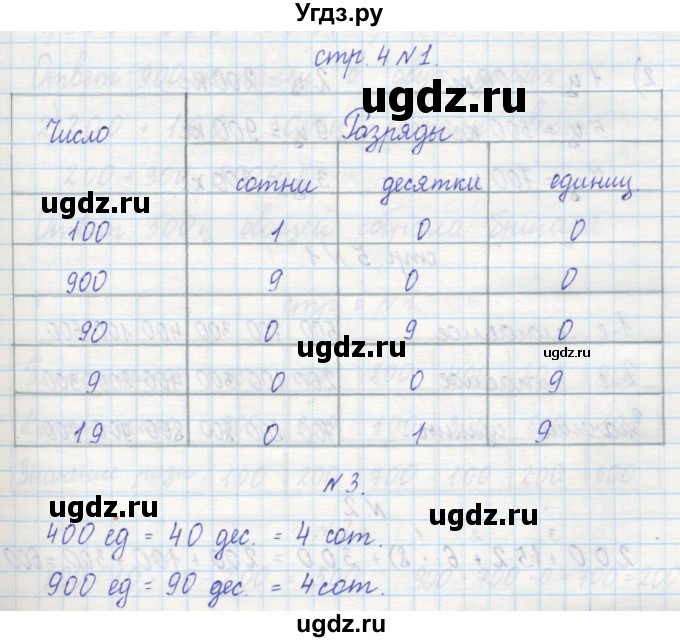 Угдз.ру
стр. 4 №1.
ugdz.ru
Число Разряды
сотни десятки единиц.
ugdz.ru
100 1 0 0
900 9 0 0
90 0 9 0
ugdz.ru
ugdz.ru
9 0 0 9
ugdz.ru
19 0 1 9
№3.
ugdz.ru
400 ед = 40 дес. = 4 сот.
ugdz.ru
900 ед = 90 дес. = 4 сот.
ugdz.ru